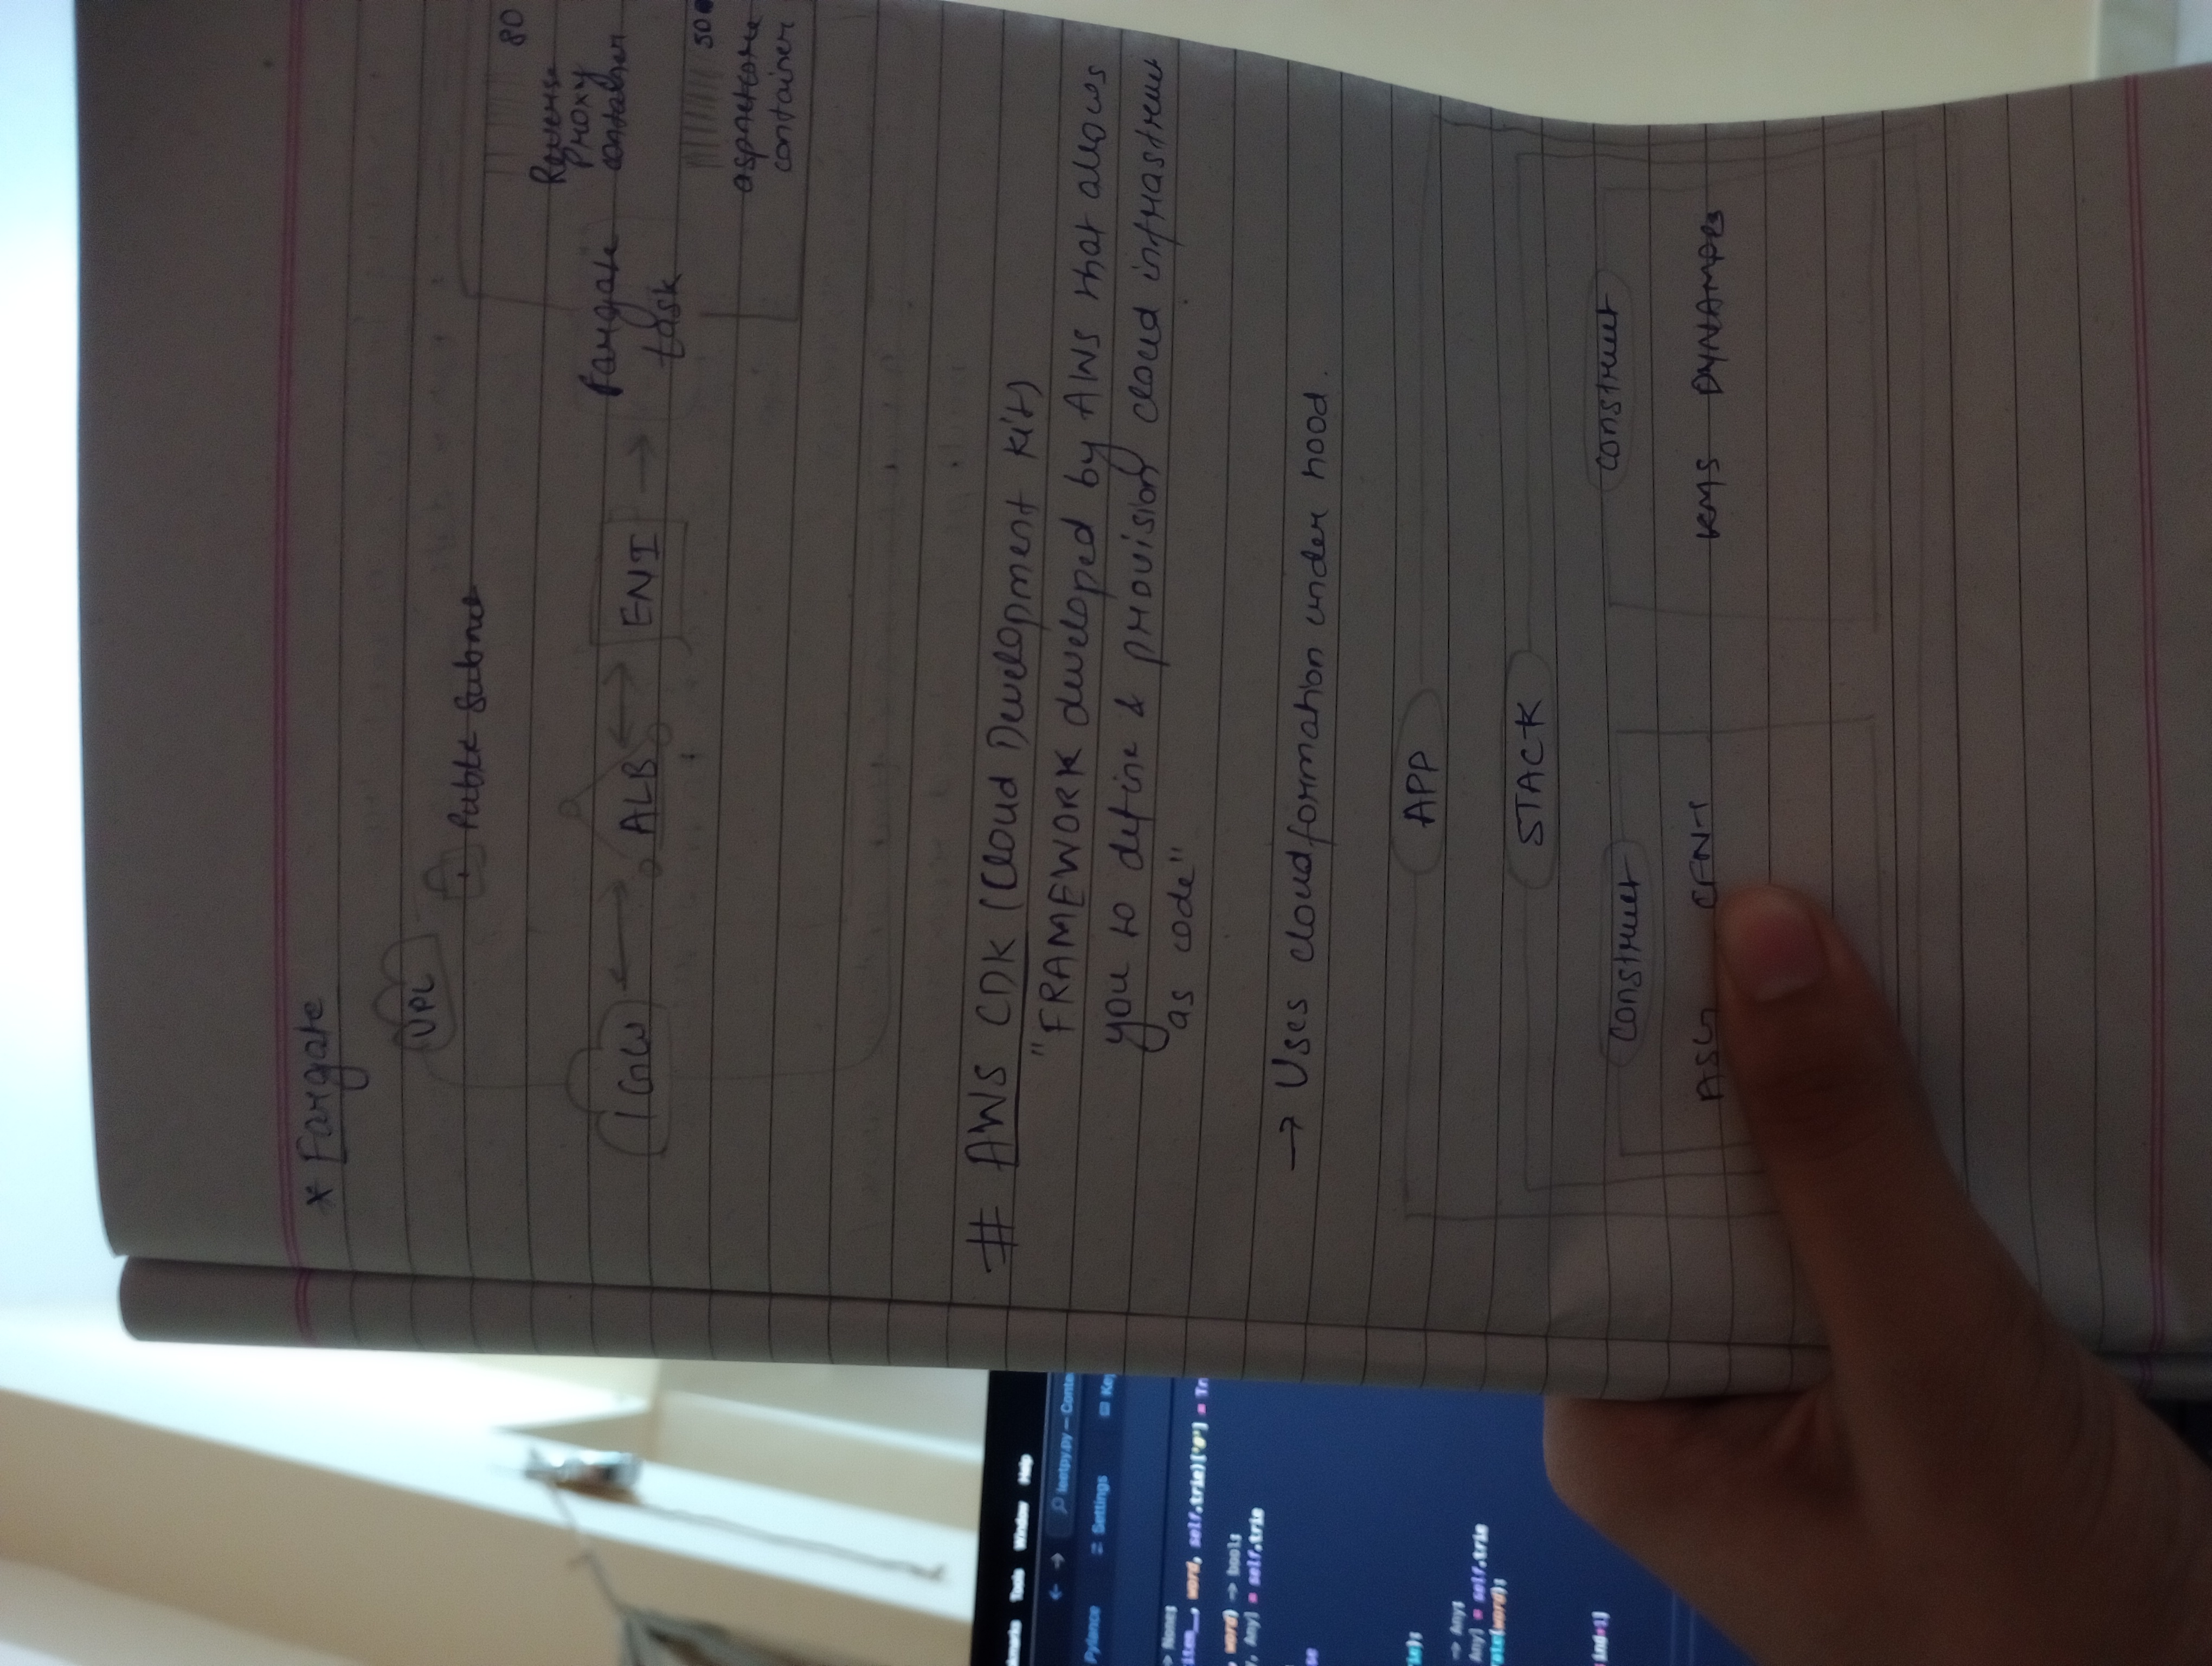 * Fargate
VPC
Public Subnet
80
Reverse
Proxy
container
IGW
ALB
ENI
Fargate
task
50
aspnetcore
container
# AWS CDK (Cloud Development Kit)
"FRAMEWORK developed by AWS that allows
you to define & provision cloud infrastruct
as code"
→ Uses cloudformation under hood.
APP
STACK
construct
construct
ASG
KMS
kmarks Tools Window Help
← → leetpy.py — Conte
Pylance Settings Key
-> None:
item__, word, self.trie)['@'] = Tr
, word) -> bool:
y, Any] = self.trie
se
ie):
-> Any:
Any] = self.trie
rate(word):
:ind+1]